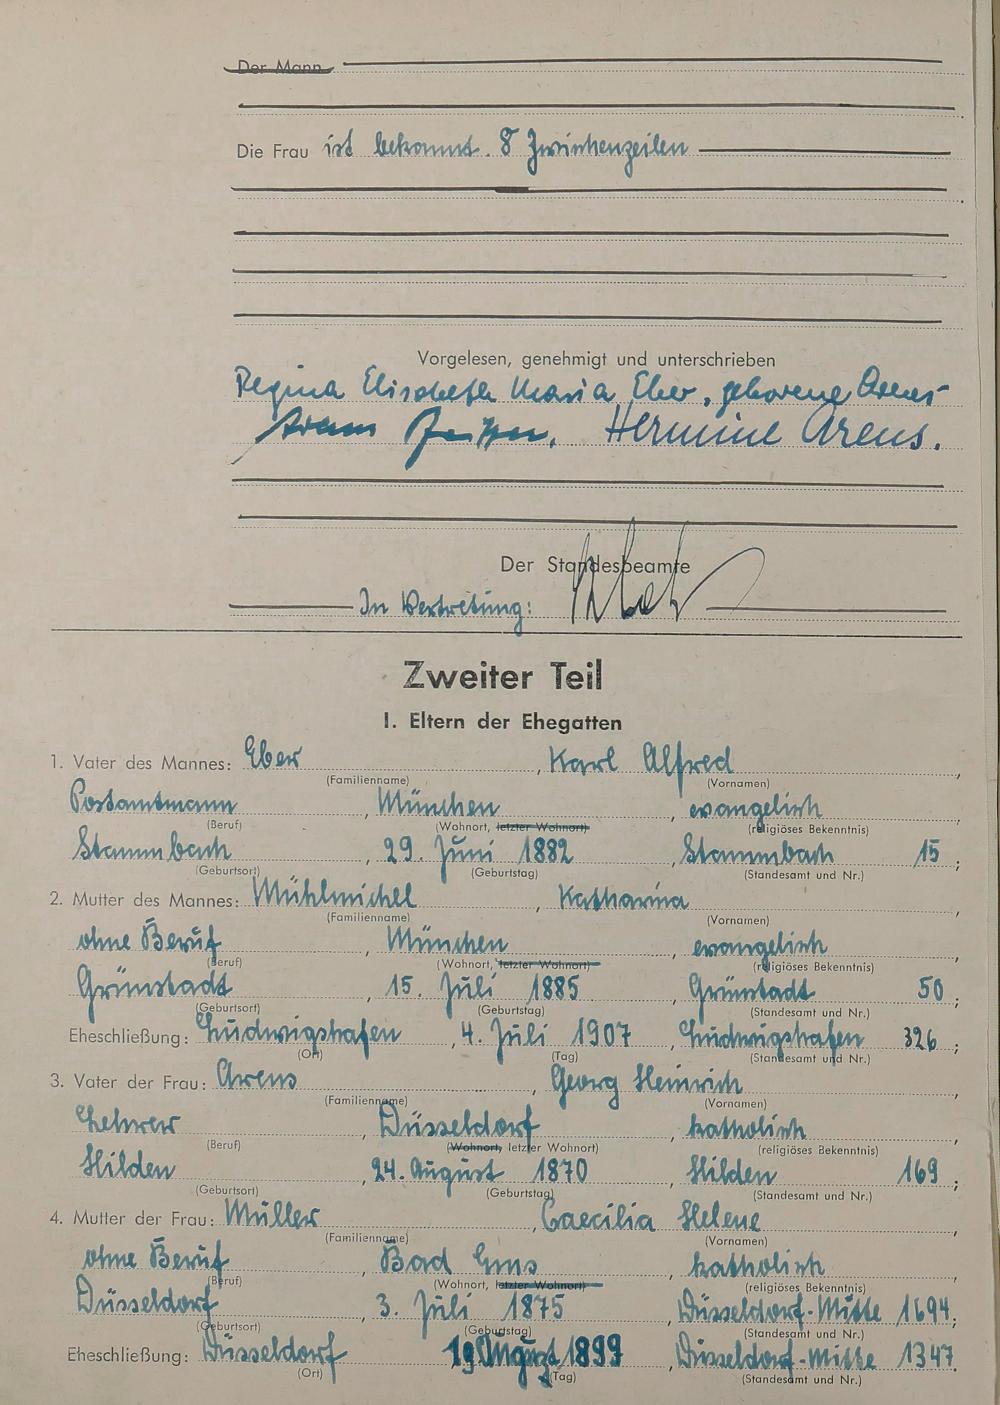 Der Mann
Die Frau ist bekannt. 8 Zwischenzeilen
Vorgelesen, genehmigt und unterschrieben
Regina Elisabeth Maria Eber, geborene Arens
Hermine Arens.
Der Standesbeamte
In Vertretung:
Zweiter Teil
I. Eltern der Ehegatten
1. Vater des Mannes: Eber, Karl Alfred,
(Familienname) (Vornamen)
Postamtmann, München, evangelisch
(Beruf) (Wohnort, letzter Wohnort) (religiöses Bekenntnis)
Stammbach, 29. Juni 1882, Stammbach 15;
(Geburtsort) (Geburtstag) (Standesamt und Nr.)
2. Mutter des Mannes: Mühlmichel, Katharina,
(Familienname) (Vornamen)
ohne Beruf, München, evangelisch
(Beruf) (Wohnort, letzter Wohnort) (religiöses Bekenntnis)
Grünstadt, 15. Juli 1885, Grünstadt 50;
(Geburtsort) (Geburtstag) (Standesamt und Nr.)
Eheschließung: Ludwigshafen, 4. Juli 1907, Ludwigshafen 326;
(Ort) (Tag) (Standesamt und Nr.)
3. Vater der Frau: Arens, Georg Heinrich,
(Familienname) (Vornamen)
Lehrer, Düsseldorf, katholisch,
(Beruf) (Wohnort, letzter Wohnort) (religiöses Bekenntnis)
Hilden, 24. August 1870, Hilden 169;
(Geburtsort) (Geburtstag) (Standesamt und Nr.)
4. Mutter der Frau: Müller, Caecilia Helene,
(Familienname) (Vornamen)
ohne Beruf, Bad Ems, katholisch,
(Beruf) (Wohnort, letzter Wohnort) (religiöses Bekenntnis)
Düsseldorf, 3. Juli 1875, Düsseldorf-Mitte 1694;
(Geburtsort) (Geburtstag) (Standesamt und Nr.)
Eheschließung: Düsseldorf 19 August 1899, Düsseldorf-Mitte 1347.
(Ort) (Tag) (Standesamt und Nr.)